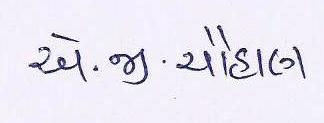 એ. જી. ચૌહાણ